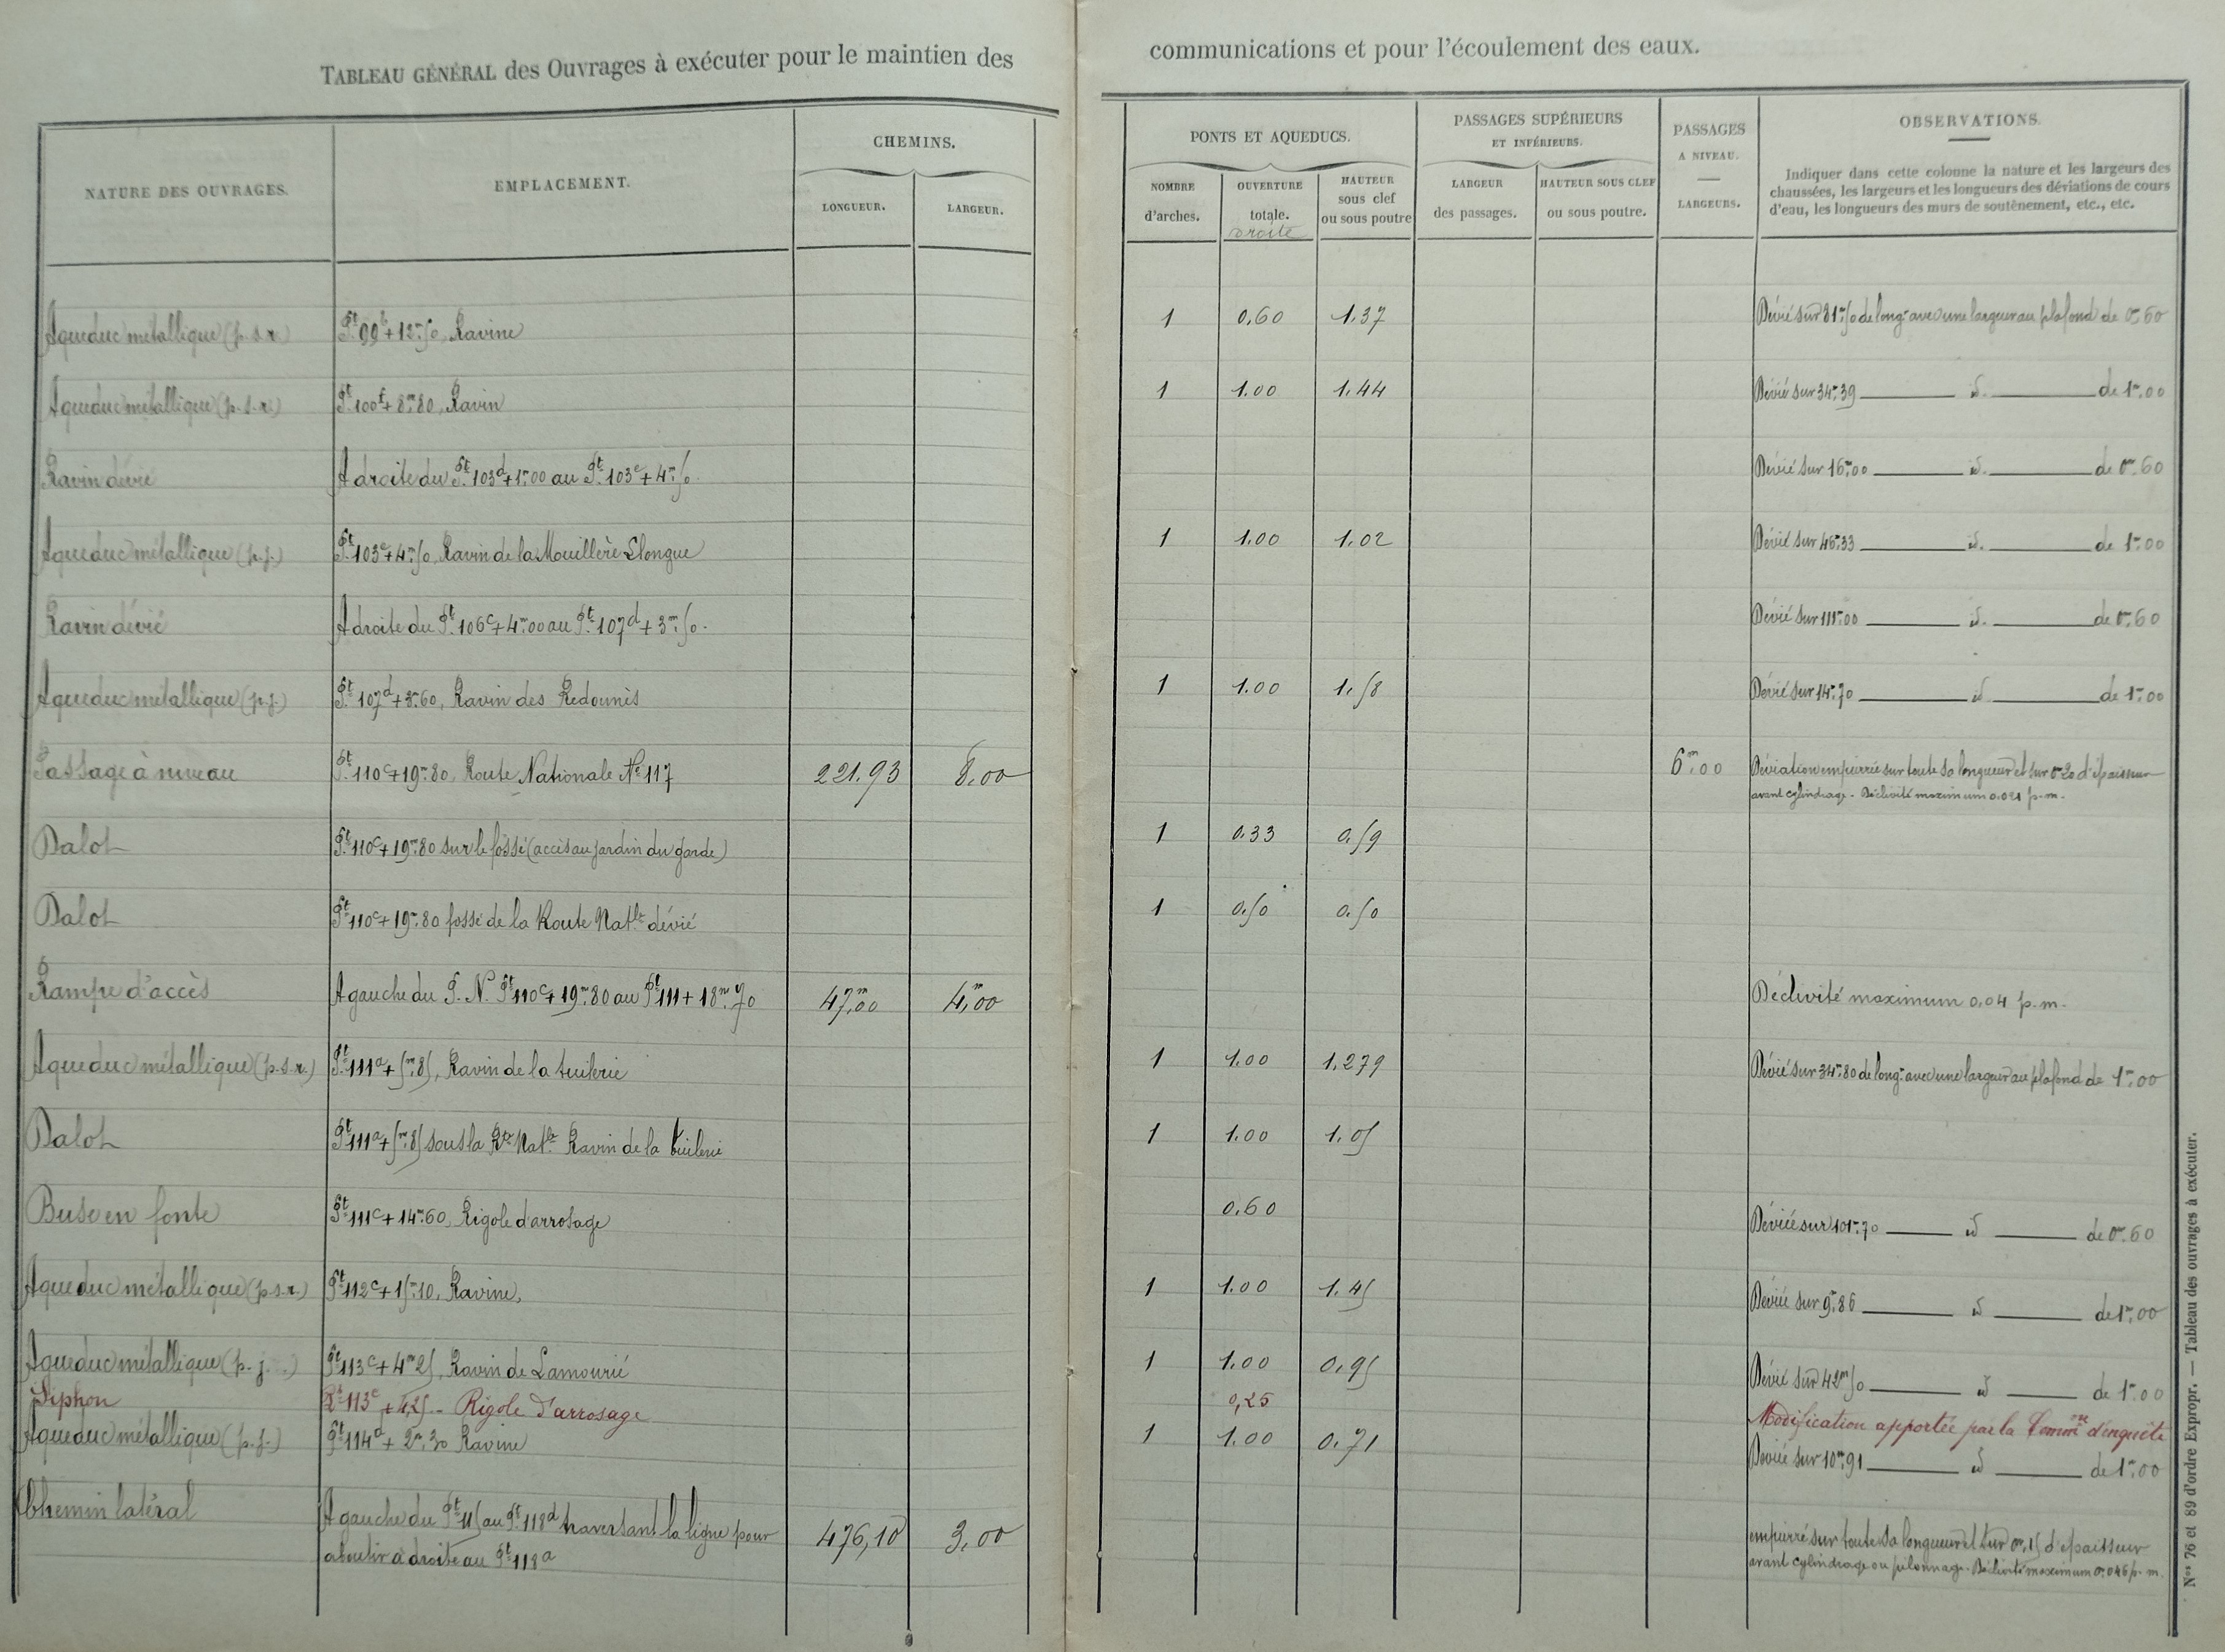 TABLEAU GÉNÉRAL des Ouvrages à exécuter pour le maintien des communications et pour l'écoulement des eaux.
NATURE DES OUVRAGES.
EMPLACEMENT.
CHEMINS.
LONGUEUR.
LARGEUR.
PONTS ET AQUEDUCS.
NOMBRE
d'arches.
OUVERTURE
totale.
droite
HAUTEUR
sous clef
ou sous poutre
PASSAGES SUPÉRIEURS
ET INFÉRIEURS.
LARGEUR
des passages.
HAUTEUR SOUS CLEF
ou sous poutre.
PASSAGES
A NIVEAU.
LARGEURS.
OBSERVATIONS.
Indiquer dans cette colonne la nature et les largeurs des
chaussées, les largeurs et les longueurs des déviations de cours
d'eau, les longueurs des murs de soutènement, etc., etc.
Aqueduc métallique (p.s.r.) Pt. 99b + 12m,50, Ravine 1 0.60 1.37 Dévié sur 81m,50 de longr avec une largeur au plafond de 0m.60
Aqueduc métallique (p.s.r.) Pt. 100f + 8m.80, Ravin 1 1.00 1.44 Dévié sur 34m.39 — id. — de 1m.00
Ravin dévié A droite du Pt. 103d + 1m.00 au Pt. 103e + 4m.50. Dévié sur 16m.00 — id. — de 0m.60
Aqueduc métallique (p.j.) Pt. 103e + 4m.50, Ravin de la Mouillère Llongue 1 1.00 1.02 Dévié sur 46m.33 — id. — de 1m.00
Ravin dévié A droite du Pt. 106c + 4m.00 au Pt. 107d + 3m.50. Dévié sur 111m.00 — id. — de 0m.60
Aqueduc métallique (p.j.) Pt. 107d + 8m.60, Ravin des Redounès 1 1.00 1.58 Dévié sur 14m.70 — id — de 1m.00
Passage à niveau Pt. 110c + 19m.80, Route Nationale No 117 221.93 8.00 6m.00 Déviation empierrée sur toute sa longueur et sur 0m20 d'épaisseur
avant cylindrage. Déclivité maximum 0.021 p.m.
Dalot Pt. 110c + 19m.80 sur le fossé (accès au jardin du garde) 1 0.33 0.59
Dalot Pt. 110c + 19m.80 fossé de la Route Natle dévié 1 0.50 0.50
Rampe d'accès A gauche du P.N. Pt. 110c + 19m.80 au Pt. 111 + 18m.70 47m,00 4m,00 Déclivité maximum 0,04 p.m.
Aqueduc métallique (p.s.r.) Pt. 111a + 5m.85, Ravin de la tuilerie 1 1.00 1.279 Dévié sur 34m.80 de longr avec une largeur au plafond de 1m.00
Dalot Pt. 111a + 5m.85 sous la Rte Natle Ravin de la tuilerie 1 1.00 1.05
Buse en fonte Pt. 111c + 14m.60, Rigole d'arrosage 0.60 Déviée sur 101m.70 — id — de 0m.60
Aqueduc métallique (p.s.r.) Pt. 112c + 15m.10, Ravine, 1 1.00 1.45 Déviée sur 9m.86 — id — de 1m.00
Aqueduc métallique (p.j.) Pt. 113c + 4m25, Ravin de Lamourié 1 1.00 0.95 Dévié sur 42m50 — id — de 1m.00
Siphon Pt. 113c + 4,25 - Rigole d'arrosage 0,25 Modification apportée par la Common d'enquête
Aqueduc métallique (p.j.) Pt. 114d + 2m.30 Ravine 1 1.00 0.71 Déviée sur 10m.91 — id — de 1m.00
Chemin latéral A gauche du Pt. 115 au Pt. 118d traversant la ligne pour
aboutir à droite au Pt. 118a 476,10 3,00 empierré sur toute sa longueur et sur 0m,15 d'épaisseur
avant cylindrage ou pilonnage. Déclivité maximum 0m.046 p.m.
Nos 76 et 89 d'ordre Expropr. — Tableau des ouvrages à exécuter.